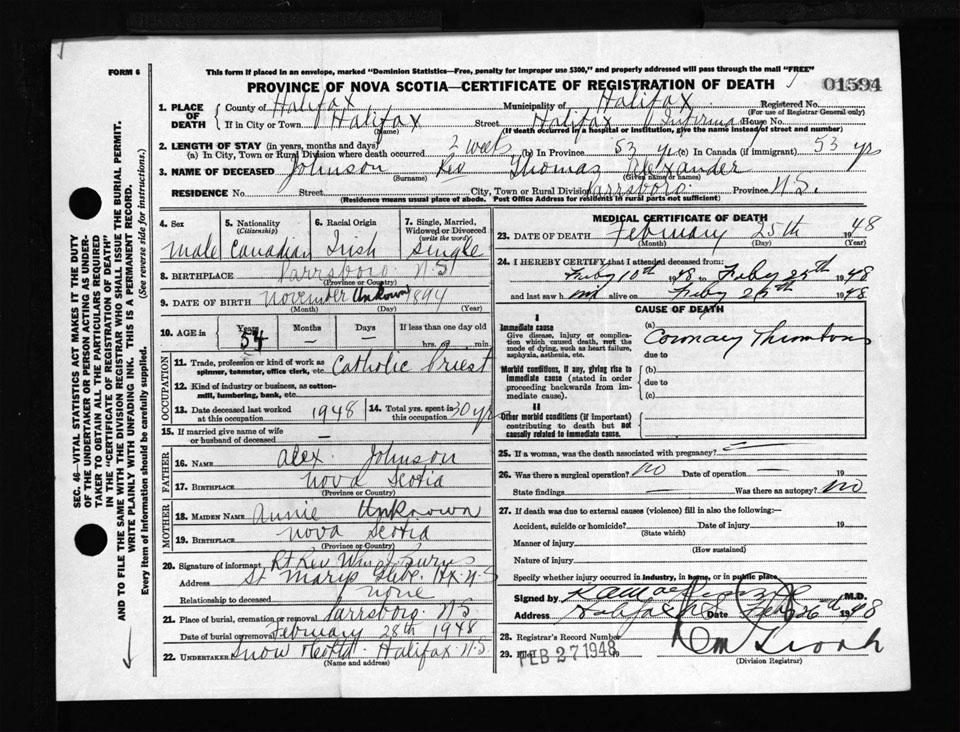 FORM 6
This form if placed in an envelope, marked "Dominion Statistics—Free, penalty for improper use $300," and properly addressed will pass through the mail "FREE"
PROVINCE OF NOVA SCOTIA—CERTIFICATE OF REGISTRATION OF DEATH
01594
1. PLACE OF DEATH
County of Halifax Municipality of Halifax Registered No.
(For use of Registrar General only)
If in City or Town Halifax Street Halifax Infirmary House No.
(Name) (If death occurred in a hospital or institution, give the name instead of street and number)
2. LENGTH OF STAY (in years, months and days)
(a) In City, Town or Rural Division where death occurred 2 weeks (b) In Province 53 yrs (c) In Canada (if immigrant) 53 yrs
3. NAME OF DECEASED Johnson Rev Thomas Alexander
(Surname) (Given name or names)
RESIDENCE No. Street City, Town or Rural Division Parrsboro Province N.S.
(Residence means usual place of abode. Post Office Address for residents in rural parts not sufficient)
4. Sex
Male
5. Nationality
(Citizenship)
Canadian
6. Racial Origin
Irish
7. Single, Married, Widowed or Divorced
(write the word)
Single
8. BIRTHPLACE Parrsboro N.S
(Province or Country)
9. DATE OF BIRTH November Unknown 1894
(Month) (Day) (Year)
10. AGE in
Years Months Days If less than one day old
54 — — hrs. or min.
OCCUPATION
11. Trade, profession or kind of work as spinner, teamster, office clerk, etc. Catholic Priest
12. Kind of industry or business, as cotton-mill, lumbering, bank, etc.
13. Date deceased last worked at this occupation 1948 14. Total yrs. spent in this occupation 30 yrs
15. If married give name of wife or husband of deceased —
FATHER
16. NAME Alex. Johnson
17. BIRTHPLACE Nova Scotia
(Province or Country)
MOTHER
18. MAIDEN NAME Annie Unknown
19. BIRTHPLACE Nova Scotia
(Province or Country)
20. Signature of informant Rt Rev Wm Burns
Address St Marys Glebe. Hx N.S
Relationship to deceased none
21. Place of burial, cremation or removal Parrsboro. N.S
Date of burial or removal February 28th 1948
22. UNDERTAKER Snow Halifax. N.S.
(Name and address)
MEDICAL CERTIFICATE OF DEATH
23. DATE OF DEATH February 25th 1948
(Month) (Day) (Year)
24. I HEREBY CERTIFY that I attended deceased from:
Feby 10th 1948 to Feby 25th 1948
and last saw him alive on Feby 25th 1948
CAUSE OF DEATH
I
Immediate cause
Give disease, injury or complication which caused death, not the mode of dying, such as heart failure, asphyxia, asthenia, etc.
(a) Coronary Thrombosis
due to
Morbid conditions, if any, giving rise to immediate cause (stated in order proceeding backwards from immediate cause).
(b)
due to
(c)
II
Other morbid conditions (if important) contributing to death but not causally related to immediate cause.
25. If a woman, was the death associated with pregnancy? —
26. Was there a surgical operation? no Date of operation — 19
State findings — Was there an autopsy? no
27. If death was due to external causes (violence) fill in also the following:—
Accident, suicide or homicide? Date of injury 19
(State which)
Manner of injury
(How sustained)
Nature of injury
Specify whether injury occurred in industry, in home, or in public place
Signed by M.D.
Address Halifax N.S Date Feb 26th 1948
28. Registrar's Record Number
29. Filed FEB 27 1948 19
(Division Registrar)
SEC. 46—VITAL STATISTICS ACT MAKES IT THE DUTY
OF THE UNDERTAKER OR PERSON ACTING AS UNDER-
TAKER TO OBTAIN ALL THE PARTICULARS REQUIRED
IN THE "CERTIFICATE OF REGISTRATION OF DEATH"
AND TO FILE THE SAME WITH THE DIVISION REGISTRAR WHO SHALL ISSUE THE BURIAL PERMIT.
WRITE PLAINLY WITH UNFADING INK. THIS IS A PERMANENT RECORD.
Every item of information should be carefully supplied. (See reverse side for instructions.)